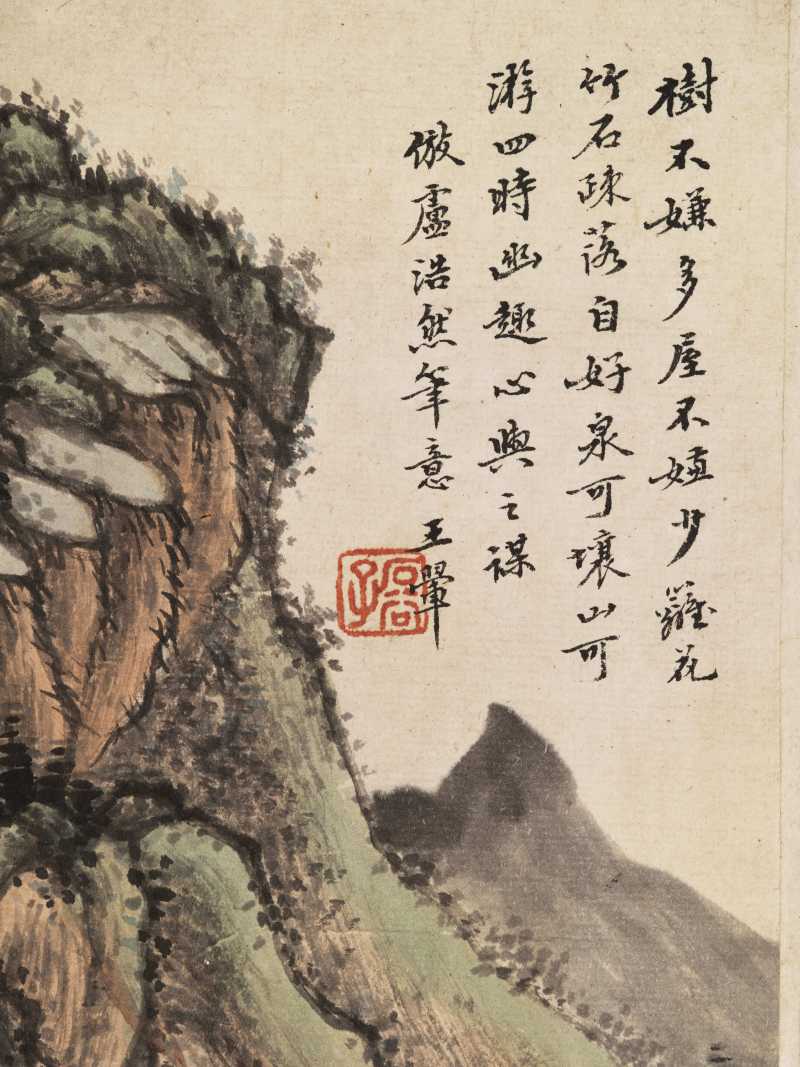 樹不嫌多屋不嫌少籬花
竹石疎落自好泉可壤山可
游四時幽趣心與之謀
倣盧浩然筆意王翬
石谷子